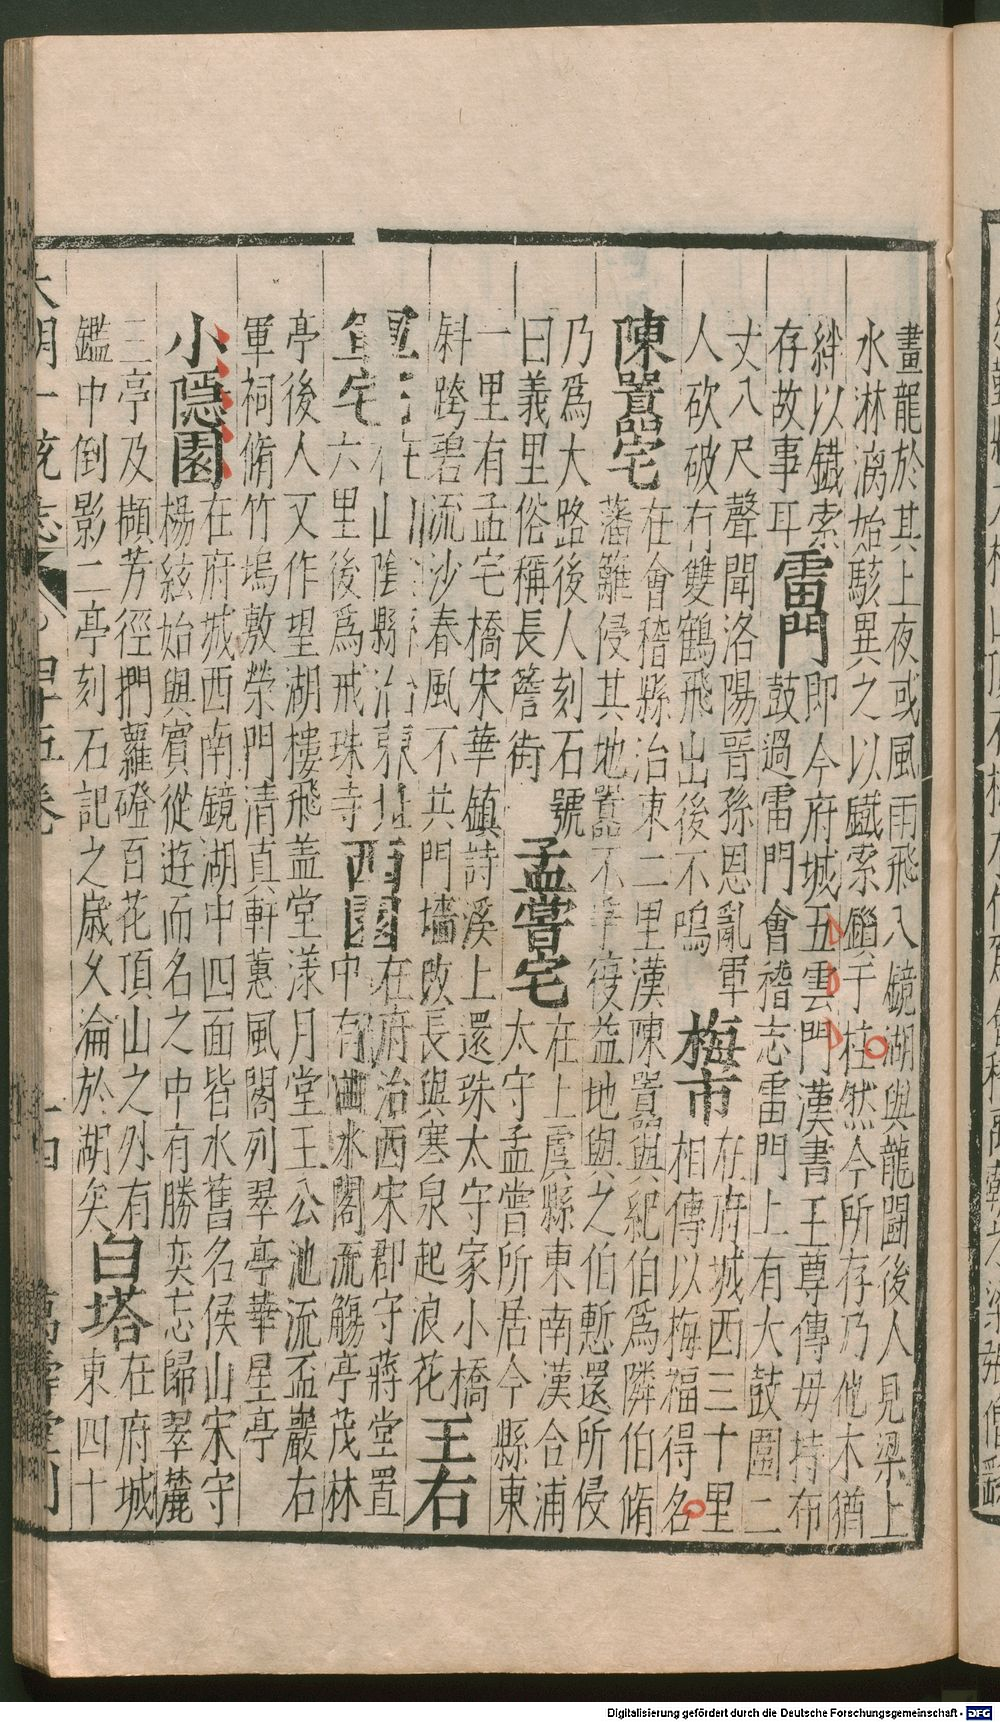 畫龍於其上夜或風雨飛入鏡湖與龍鬪後人見梁上
水淋漓始駭異之以鐵索鏁于柱然今所存乃他木猶
絆以鐵索
存故事耳
雷門
即今府城五雲門漢書王尊傳毋持布
鼓過雷門會稽志雷門上有大鼓圍二
丈八尺聲聞洛陽晉孫恩亂軍
人砍破有雙鶴飛出後不鳴
梅市
在府城西三十里
相傳以梅福得名
陳囂宅
在會稽縣治東二里漢陳囂與紀伯爲隣伯脩
藩籬侵其地囂不爭復益地與之伯慙還所侵
乃爲大路後人刻石號
曰義里俗稱長簷街
孟嘗宅
在上虞縣東南漢合浦
太守孟嘗所居今縣東
一里有孟宅橋宋華鎮詩溪上還珠太守家小橋
斜跨碧流沙春風不共門墻敗長與寒泉起浪花
王右
軍宅
山陰縣治東北
六里後爲戒珠寺
西園
在府治西宋郡守蔣堂置
中有曲水閣流觴亭茂林
亭後人又作望湖樓飛盖堂漾月堂王公池流盃巖右
軍祠脩竹塢敷榮門清真軒蕙風閣列翠亭華星亭
小隱園
在府城西南鏡湖中四面皆水舊名侯山宋守
楊紘始與賓從遊而名之中有勝奕志歸翠麓
三亭及擷芳徑捫蘿磴百花頂山之外有
鑑中倒影二亭刻石記之歲久淪於湖矣
白塔
在府城
東四十
大明一统志 四十五卷 十四 萬壽堂刊
Digitalisierung gefördert durch die Deutsche Forschungsgemeinschaft - DFG